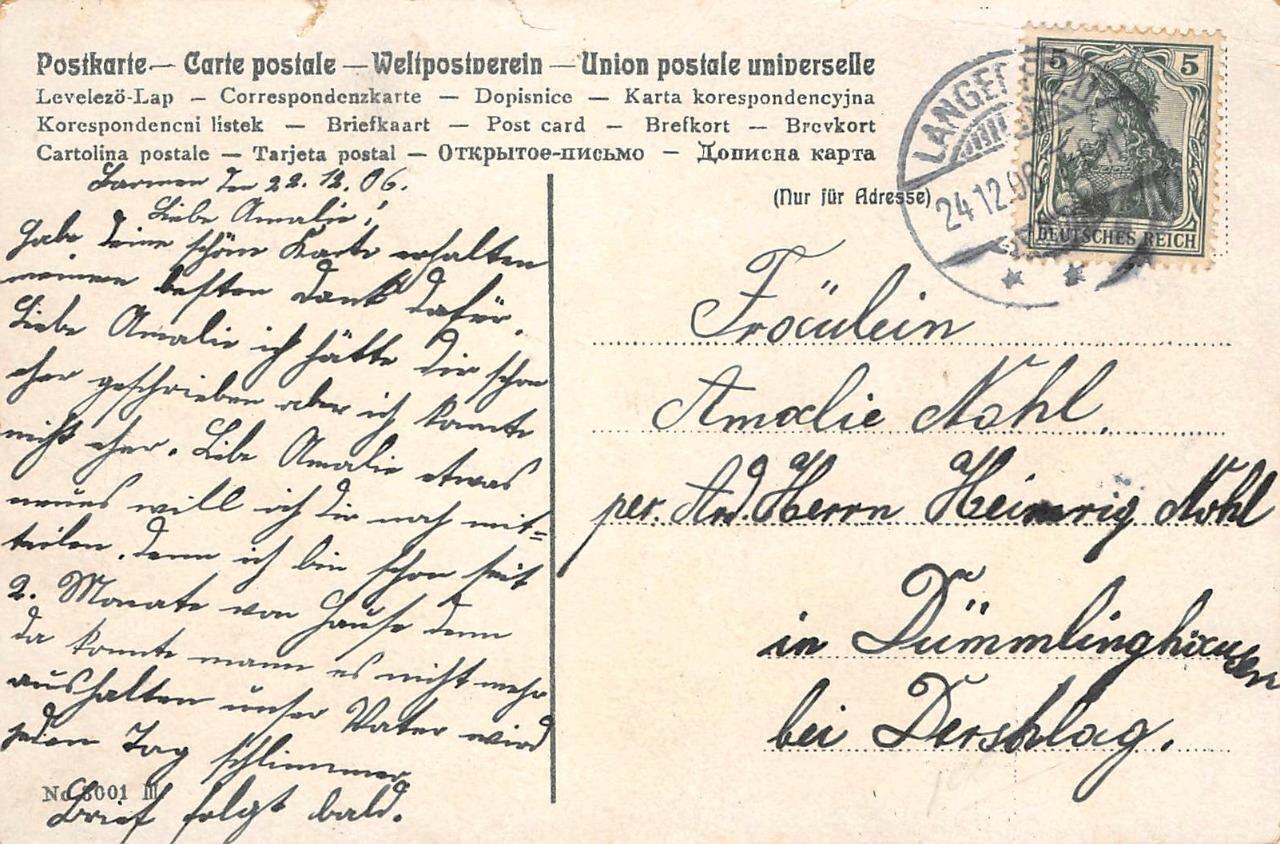 Postkarte — Carte postale — Weltpostverein — Union postale universelle
Levelező-Lap — Correspondenzkarte — Dopisnice — Karta korespondencyjna
Korespondencni listek — Briefkaart — Post card — Brefkort — Brevkort
Cartolina postale — Tarjeta postal — Открытое-письмо — Дописна карта
(Nur für Adresse)
5 5
DEUTSCHES REICH
24.12.06
Barmen den 22.12.06.
Liebe Amalie!
Habe deine schöne Karte erhalten
meinen besten Dank dafür.
Liebe Amalie ich hätte dir schon
eher geschrieben aber ich konnte
nicht eher. Libe Amalie etwas
neues will ich dir noch mit=
teilen. denn ich bin schon seit
2. Monate von Hause denn
da konnte mann es nicht mehr
aushalten unser Vater wird
jeden Tag schlimmer
Brief folgt bald.
No 3001 III
Fräulein
Amalie Nohl.
per. Ad. Herrn Heinrig Nohl
in Dümmlinghausen
bei Derschlag.